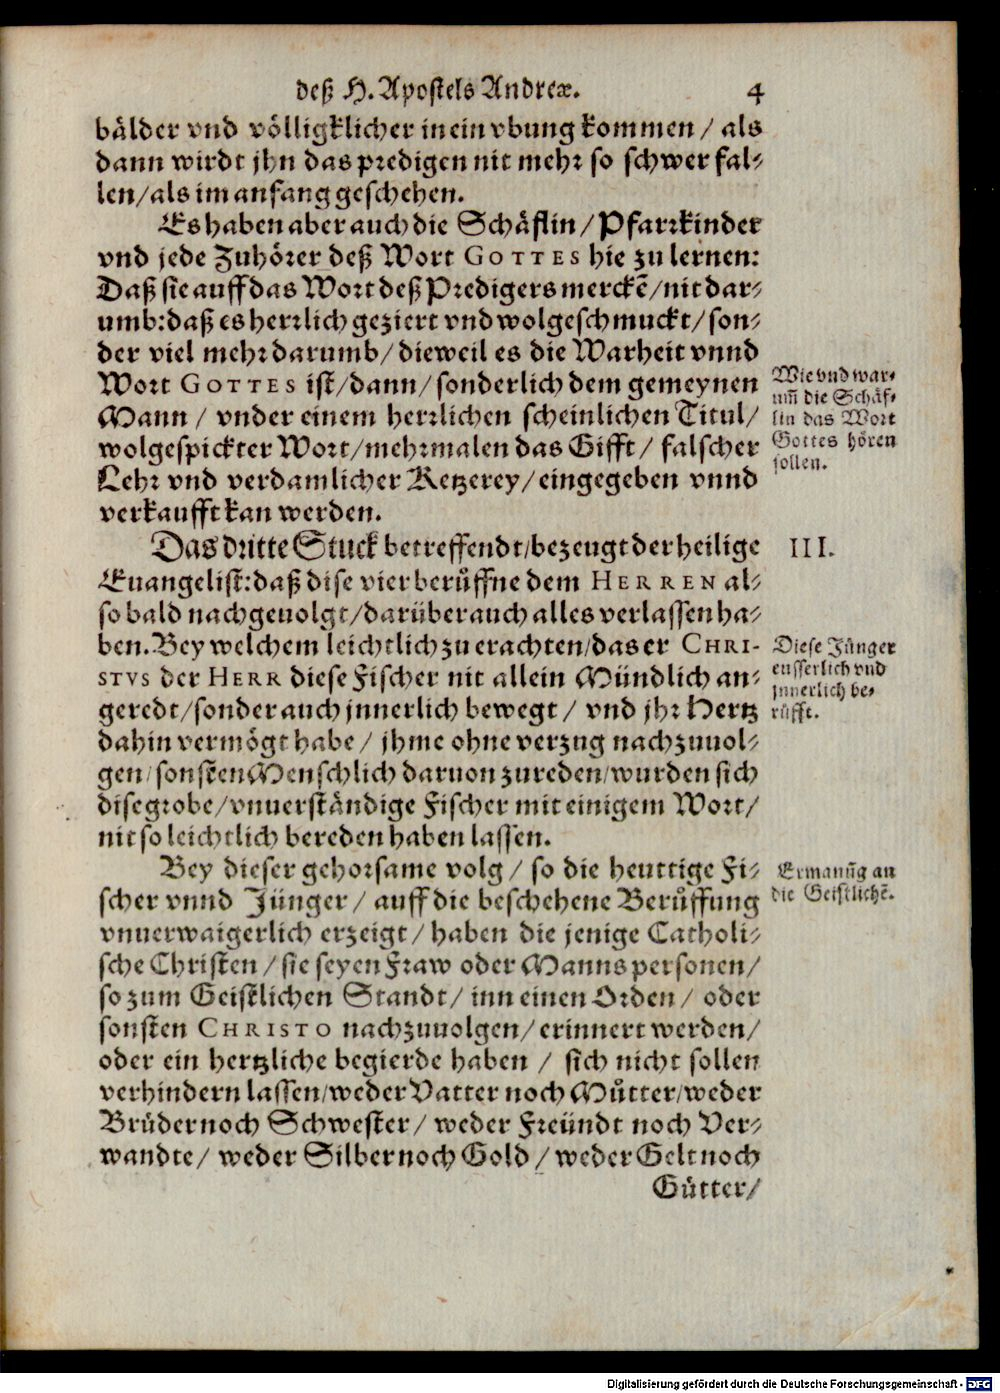 deß H. Apostels Andreæ. 4
bälder vnd völligklicher in ein vbung kommen / als
dann wirdt jhn das predigen nit mehr so schwer fal⸗
len/als im anfang geschehen.
Es haben aber auch die Schäflin / Pfarrkinder
vnd jede Zuhörer deß Wort GOTTES hie zu lernen:
Daß sie auff das Wort deß Predigers merckẽ/nit dar⸗
umb: daß es herrlich geziert vnd wolgeschmuckt/son⸗
der viel mehr darumb/dieweil es die Warheit vnnd
Wort GOTTES ist/dann/sonderlich dem gemeynen
Mann / vnder einem herrlichen scheinlichen Titul/
wolgespickter Wort/mehrmalen das Gifft / falscher
Lehr vnd verdamlicher Ketzerey/eingegeben vnnd
verkaufft kan werden.
Wie vnd war⸗
um̃ die Schäf⸗
lin das Wort
Gottes hören
sollen.
Das dritte Stuck betreffendt/bezeugt der heilige
Euangelist: daß dise vier berůffne dem HERREN al⸗
so bald nachgeuolgt/darüber auch alles verlassen ha⸗
ben. Bey welchem leichtlich zu erachten/das er CHRI-
STVS der HERR diese Fischer nit allein Mündlich an⸗
geredt/sonder auch jnnerlich bewegt / vnd jhr Hertz
dahin vermögt habe / jhme ohne verzug nachzuuol⸗
gen/sonsten Menschlich daruon zureden/wurden sich
dise grobe/vnuerständige Fischer mit einigem Wort/
nit so leichtlich bereden haben lassen.
III.
Diese Jünger
eusserlich vnd
jnnerlich be⸗
rüfft.
Bey dieser gehorsame volg / so die heuttige Fi⸗
scher vnnd Jünger / auff die beschehene Berůffung
vnuerwaigerlich erzeigt / haben die jenige Catholi⸗
sche Christen / sie seyen Fraw oder Manns personen/
so zum Geistlichen Standt / inn einen Orden / oder
sonsten CHRISTO nachzuuolgen/erinnert werden/
oder ein hertzliche begierde haben / sich nicht sollen
verhindern lassen/weder Vatter noch Můtter/weder
Brüder noch Schwester / weder Freündt noch Ver⸗
wandte / weder Silber noch Gold / weder Gelt noch
Gůtter/
Ermanũg an
die Geistlichẽ.
Digitalisierung gefördert durch die Deutsche Forschungsgemeinschaft - DFG